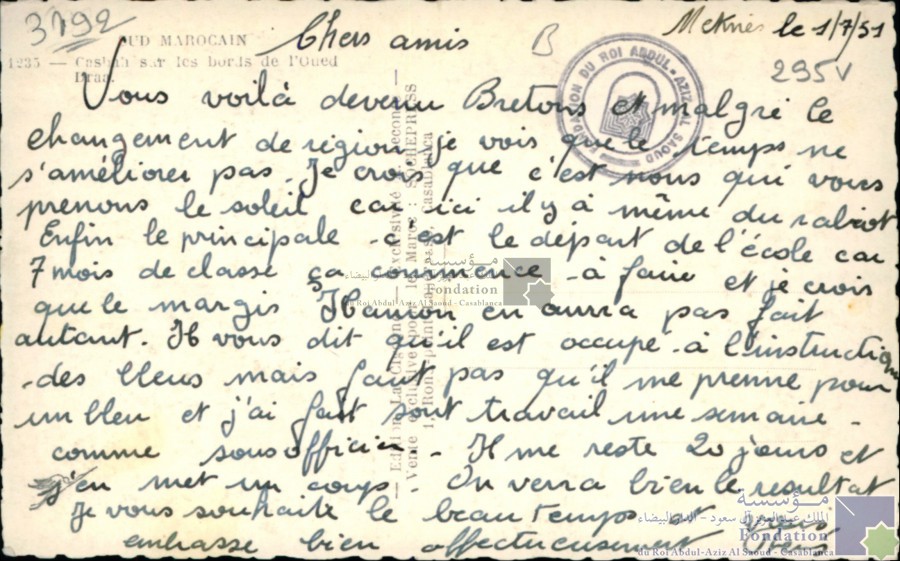 3192
SUD MAROCAIN
1235 — Casbah sur les bords de l'Oued
Draa.
Meknès le 1/7/51
B
295 v
FONDATION DU ROI ABDUL-AZIZ AL SAOUD
Chers amis
Vous voilà devenu Bretons et malgré le
changement de région je vois que le temps ne
s'améliorer pas. Je crois que c'est nous qui vous
prenons le soleil car ici il y a même du rabiot
Enfin le principale c'est le départ de l'école car
7 mois de classe ça commence à faire et je crois
que le margis Hamon en aura pas fait
autant. Il vous dit qu'il est occupé à l'instruction
des bleus mais faut pas qu'il me prenne pour
un bleu et j'ai fait sont travail une semaine
comme sous officier. Il me reste 20 jours et
j'en met un coup. On verra bien le resultat
Je vous souhaite le beau temps et vous
embrasse bien affectueusement
— Editions La Cigogne —
Vente exclusive pour le Maroc : SOCHEPRESS
1, Rond-point Casablanca
مؤسسة
الملك عبد العزيز آل سعود - الدار البيضاء
Fondation
du Roi Abdul-Aziz Al Saoud - Casablanca
مؤسسة
الملك عبد العزيز آل سعود - الدار البيضاء
Fondation
du Roi Abdul-Aziz Al Saoud - Casablanca